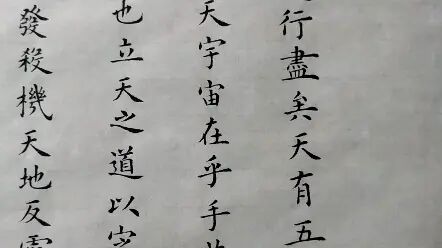 行盡矣天有五
天宇宙在乎手
也立天之道以定
發殺機天地反